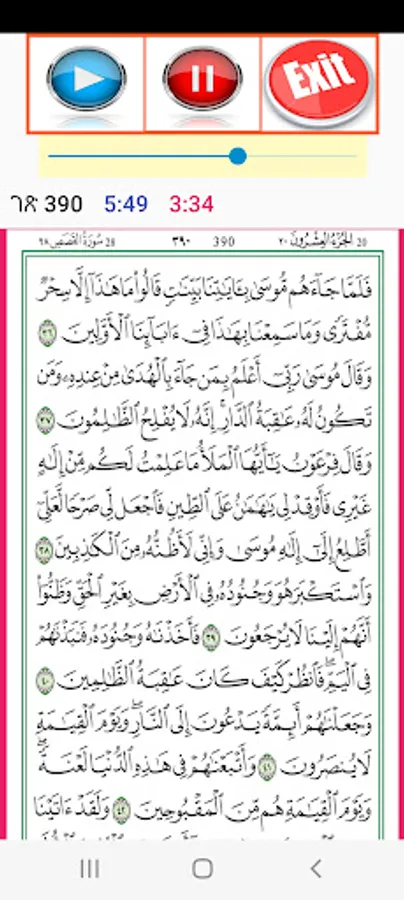 Exit
ገጽ 390 5:49 3:34
28 سُورَةُ القَصَصِ ٢٨ ٣٩٠ 390 الجُزْءُ العِشْرُونَ ٢٠ 20
فَلَمَّا جَآءَهُم مُّوسَىٰ بِـَٔايَٰتِنَا بَيِّنَٰتٍ قَالُوا۟ مَا هَٰذَآ إِلَّا سِحْرٌ
مُّفْتَرًى وَمَا سَمِعْنَا بِهَٰذَا فِىٓ ءَابَآئِنَا ٱلْأَوَّلِينَ ٣٦
وَقَالَ مُوسَىٰ رَبِّىٓ أَعْلَمُ بِمَن جَآءَ بِٱلْهُدَىٰ مِنْ عِندِهِۦ وَمَن
تَكُونُ لَهُۥ عَٰقِبَةُ ٱلدَّارِ ۖ إِنَّهُۥ لَا يُفْلِحُ ٱلظَّٰلِمُونَ ٣٧
وَقَالَ فِرْعَوْنُ يَٰٓأَيُّهَا ٱلْمَلَأُ مَا عَلِمْتُ لَكُم مِّنْ إِلَٰهٍ
غَيْرِى فَأَوْقِدْ لِى يَٰهَٰمَٰنُ عَلَى ٱلطِّينِ فَٱجْعَل لِّى صَرْحًا لَّعَلِّىٓ
أَطَّلِعُ إِلَىٰٓ إِلَٰهِ مُوسَىٰ وَإِنِّى لَأَظُنُّهُۥ مِنَ ٱلْكَٰذِبِينَ ٣٨
وَٱسْتَكْبَرَ هُوَ وَجُنُودُهُۥ فِى ٱلْأَرْضِ بِغَيْرِ ٱلْحَقِّ وَظَنُّوٓا۟
أَنَّهُمْ إِلَيْنَا لَا يُرْجَعُونَ ٣٩ فَأَخَذْنَٰهُ وَجُنُودَهُۥ فَنَبَذْنَٰهُمْ
فِى ٱلْيَمِّ ۖ فَٱنظُرْ كَيْفَ كَانَ عَٰقِبَةُ ٱلظَّٰلِمِينَ ٤٠
وَجَعَلْنَٰهُمْ أَئِمَّةً يَدْعُونَ إِلَى ٱلنَّارِ ۖ وَيَوْمَ ٱلْقِيَٰمَةِ
لَا يُنصَرُونَ ٤١ وَأَتْبَعْنَٰهُمْ فِى هَٰذِهِ ٱلدُّنْيَا لَعْنَةً ۖ
وَيَوْمَ ٱلْقِيَٰمَةِ هُم مِّنَ ٱلْمَقْبُوحِينَ ٤٢ وَلَقَدْ ءَاتَيْنَا